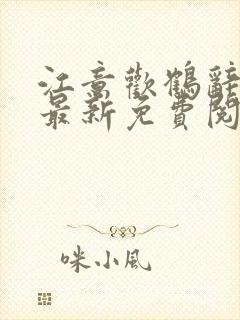 江意歡鶴辭
最新免費閱
咪小風